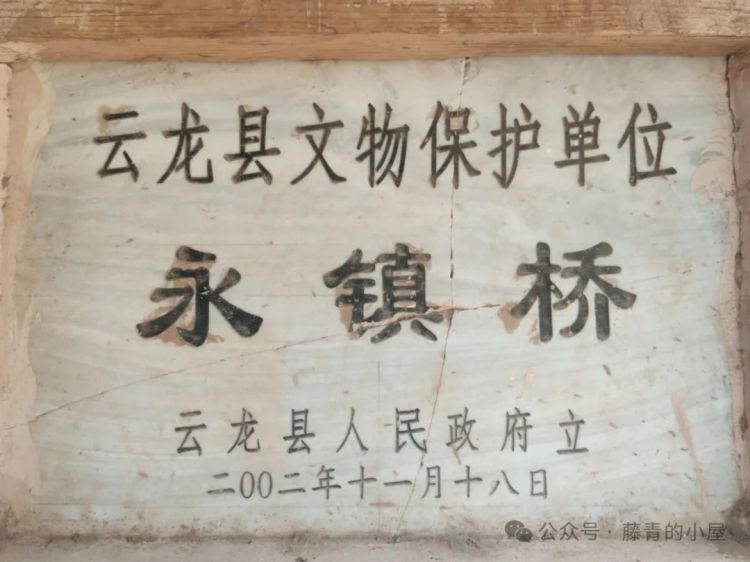 云龙县文物保护单位
永镇桥
云龙县人民政府立
二00二年十一月十八日
公众号·藤青的小屋